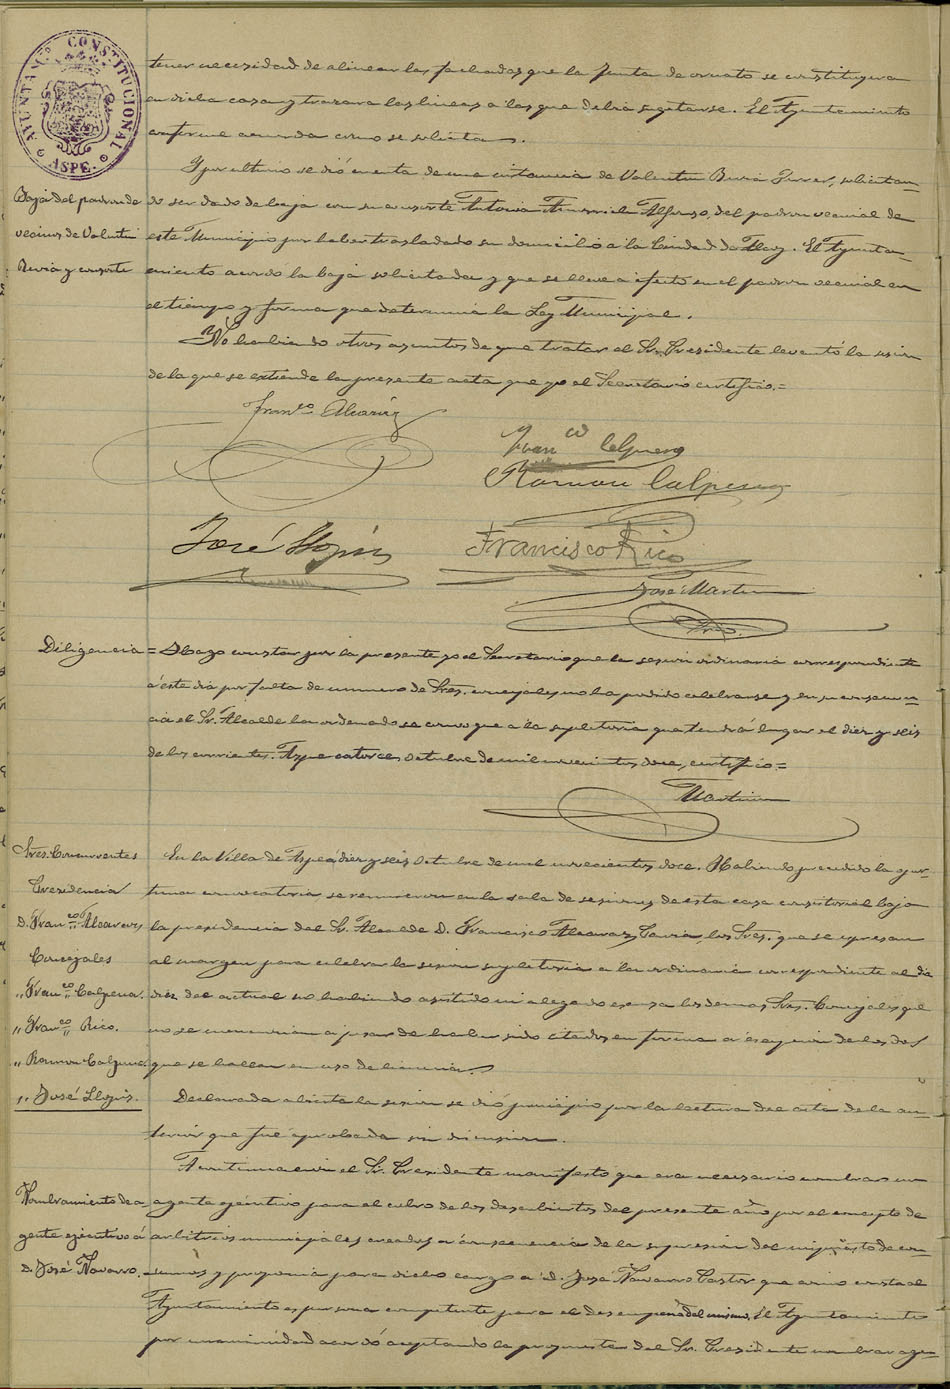 AYUNTAMTO CONSTITUCIONAL
ASPE.
tener necesidad de alinear las fachadas que la Junta de ornato se constituyera
en dicha casa y trazara las lineas á las que debia sugetarse. El Ayuntamiento
conforme acuerda como se solicita.
Y por ultimo se dió cuenta de una instancia de Valentin Beviá Ferrer, solicitan-
Baja del padron de
vecinos de Valentin
Beviá y consorte
do ser dado de baja con su consorte Antonia Alfonso, del padron vecinal de
este Municipio por haber trasladado su domicilio á la Ciudad de Alcoy. El Ayunta-
miento acordó la baja solicitada y que se lleve á efecto en el padron vecinal en
el tiempo y forma que determina la Ley Municipal.
No habiendo otros asuntos de que tratar el Sr. Presidente levantó la sesion
de la que se extiende la presente acta que yo el Secretario certifico.=
Franco Alcaraz
Franco Calpena
Ramon Calpena
José Llopis
Francisco Rico
José Martin
Srio.
Diligencia = Hago constar por la presente yo el Secretario que la sesion ordinaria correspondiente
á este dia por falta de numero de Sres. concejales no ha podido celebrarse y en su consecuen-
cia el Sr. Alcalde ha ordenado se convoque á la supletoria que tendrá lugar el diez y seis
de los corrientes. Aspe catorce Octubre de mil novecientos doce, certifico=
Martin
Sres. Concurrentes
Presidencia
D. Franco Alcaraz
Concejales
" Franco Calpena.
" Franco Rico.
" Ramon Calpena
" José Llopis.
En la Villa de Aspe á diez y seis Octubre de mil novecientos doce. Habiendo precedido la opor-
tuna convocatoria se reunieron en la sala de sesiones de esta casa consistorial bajo
la presidencia del Sr. Alcalde D. Francisco Alcaraz Pavia, los Sres. que se expresan
al margen para celebrar la sesion supletoria á la ordinaria correspondiente al dia
del actual no habiendo asistido ni alegado escusa los demas Sres. Concejales que
no se mencionan á pesar de haber sido citados en forma á escepcion de los dos
que se hallan en uso de licencia.
Declarada abierta la sesion se dió principio por la lectura del acta de la an-
terior que fué aprobada sin discusion.
A continuacion el Sr. Presidente manifestó que era necesario nombrar un
Nombramiento de a-
gente ejecutivo á
D. José Navarro.
agente ejecutivo para el cobro de los descubiertos del presente año por el concepto de
arbitrios municipales creados á consecuencia de la supresion del impuesto de con-
sumos y proponia para dicho cargo á D. José Navarro Pastor que como consta al
Ayuntamiento es persona competente para el desempeño del mismo. El Ayuntamiento
por unanimidad acordó aceptando la propuesta del Sr. Presidente nombrar agen-